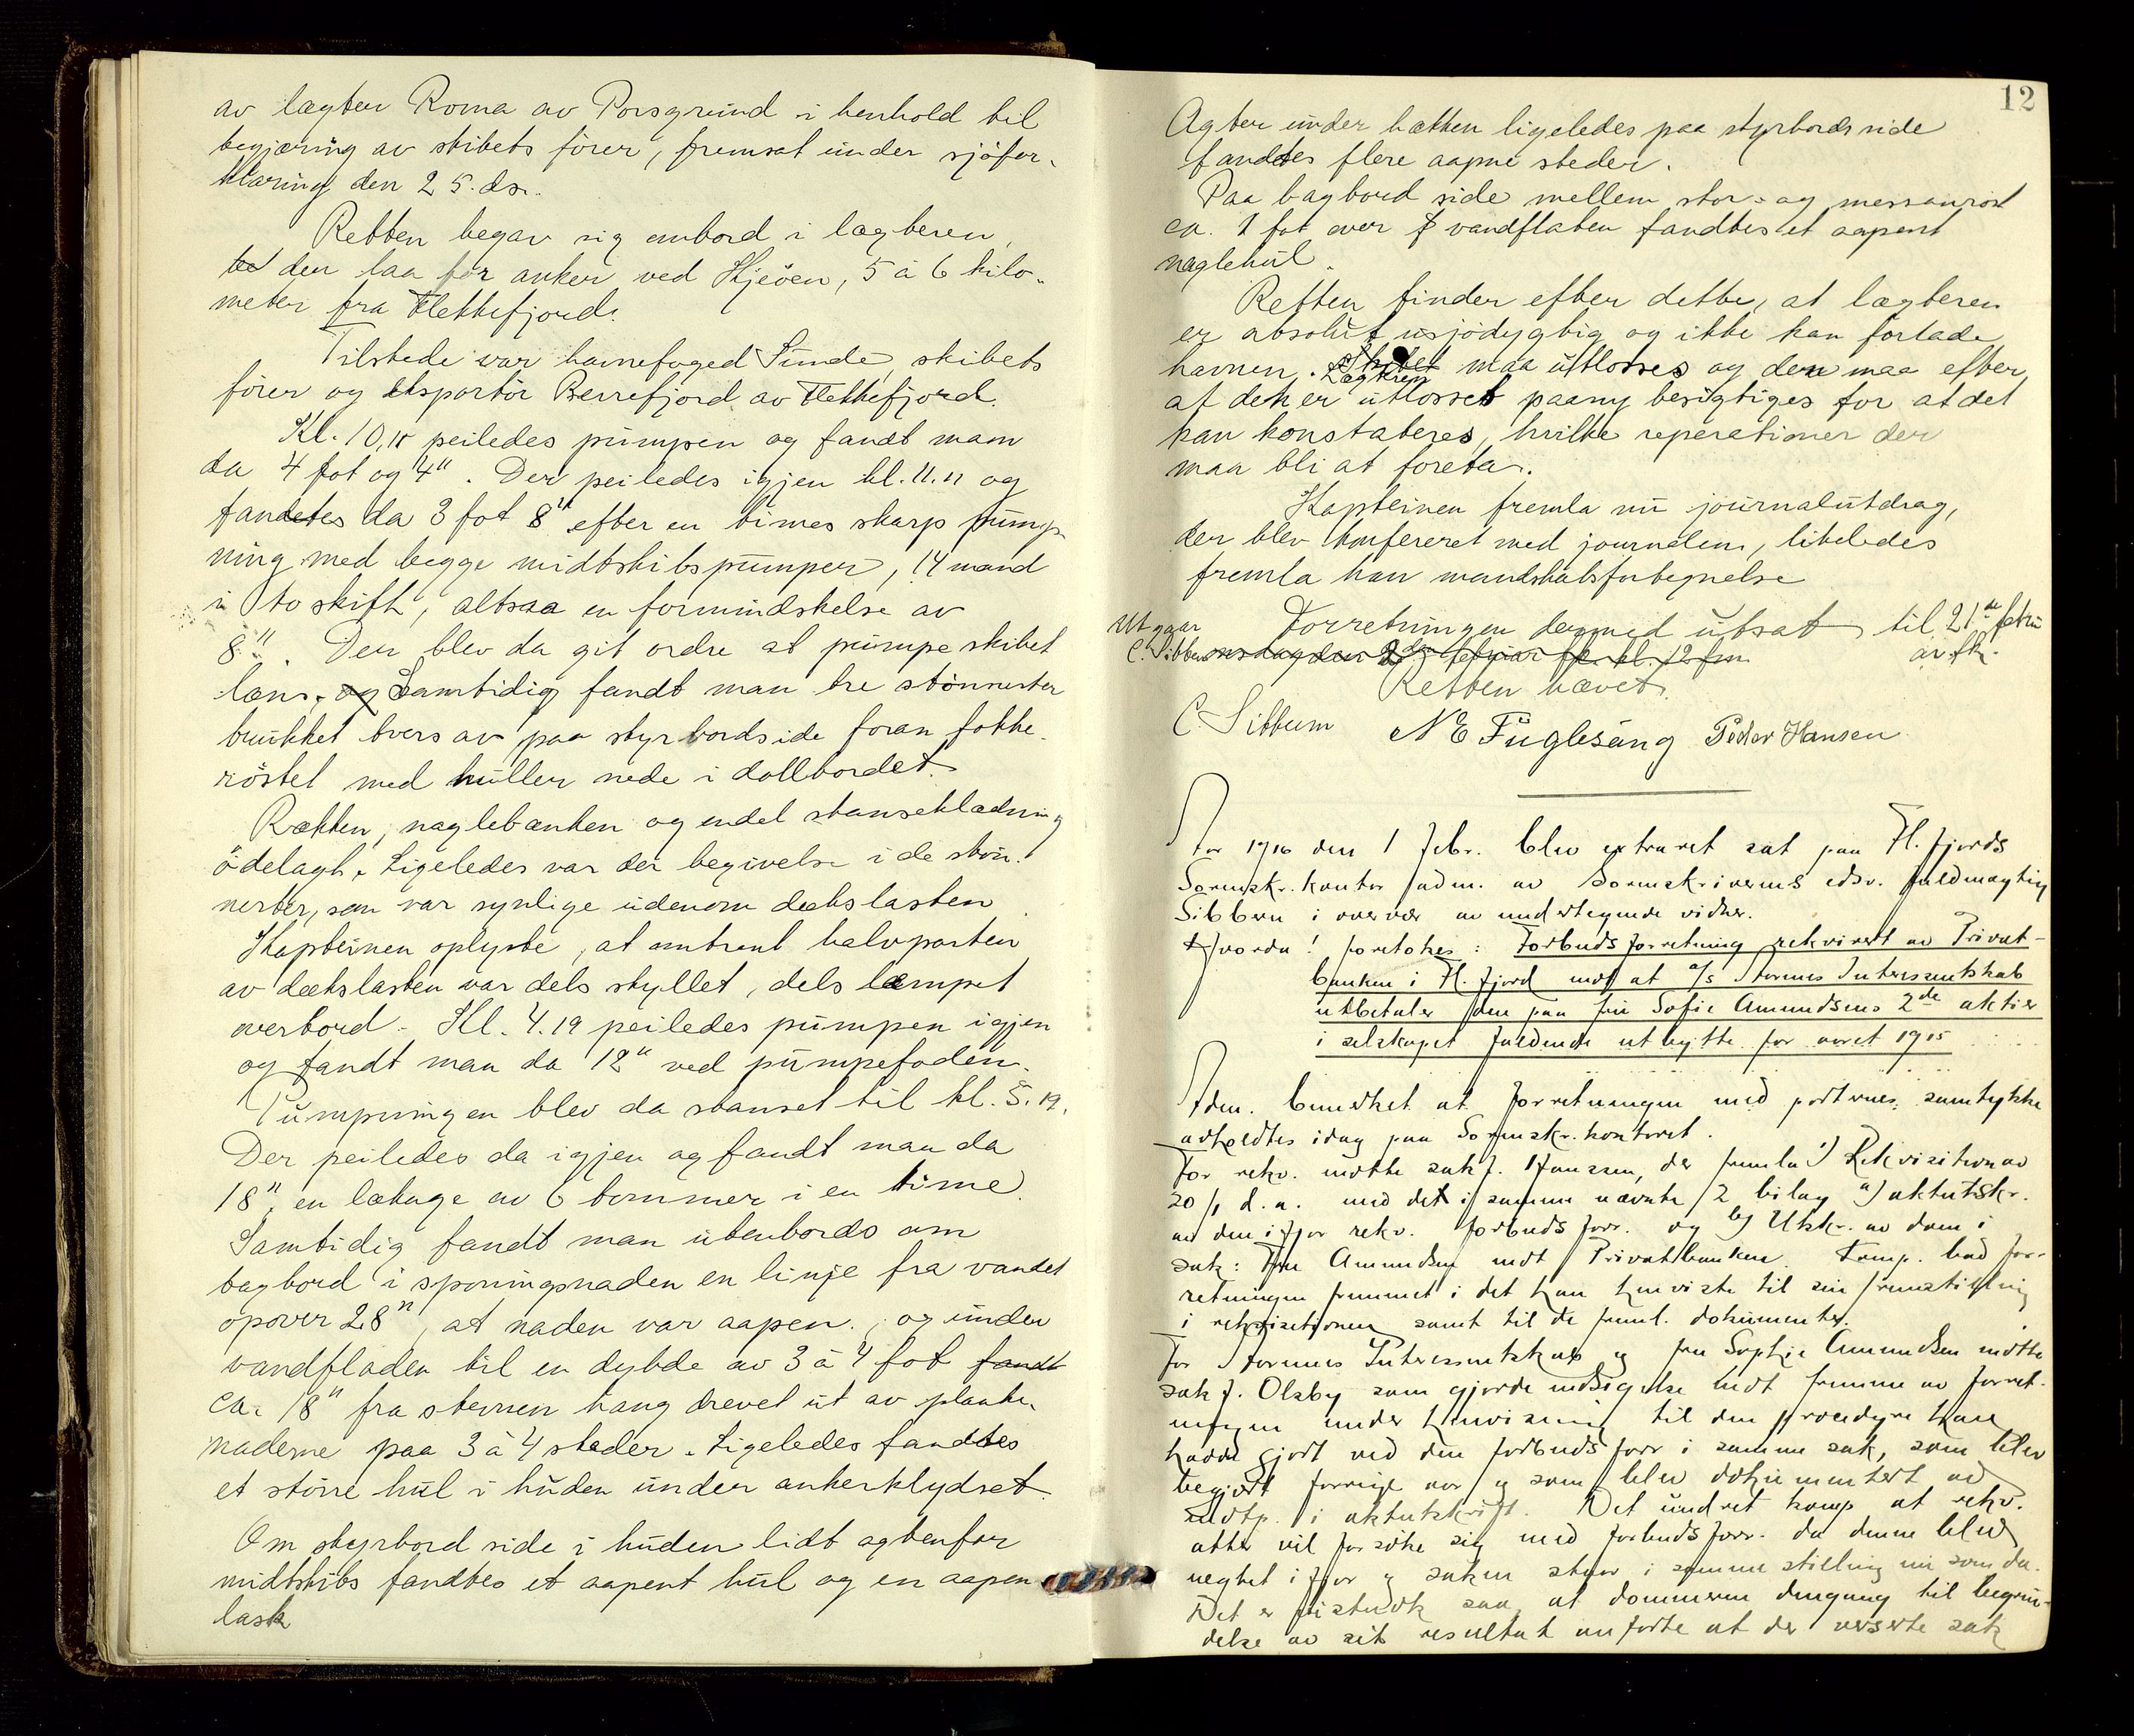 av lægter Roma av Porsgrund i henhold til
begjæring av skibets fører, fremsat under sjöfor-
klaring den 25. ds.
Retten begav sig ombord i lægteren,
der laa for anker ved Hjeöen, 5 à 6 kilo-
meter fra Flekkefjord.
Tilstede var havnefoged Sunde, skibets
förer og eksportör Berrefjord av Flekkefjord.
Kl. 10,15 peiledes pumpen og fandt mam
da 4 fot og 4". Der peiledes igjen kl. 11.11 og
fandtes da 3 fot 8" efter en times skarp pump-
ning med begge midtskibspumper, 14 mand
i to skift, altsaa en formindskelse av
8". Der blev da git ordre at pumpe skibet
læns. og Samtidig fandt man tre stönnerter
brukket tvers av paa styrbordside foran fokke-
röstet med huller nede i dollbordet.
Rækken, naglebænken og endel skanseklædning
ödelagt. Ligeledes var der begivelse i de stön-
nerter, som var synlige udenom dækslasten
Kapteinen oplyste, at omtrent halvparten
av dækslasten var dels skyllet, dels læmpet
overbord. Kl. 4.19 peiledes pumpen igjen
og fandt man da 12" ved pumpefoden.
Pumpningen blev da stanset til kl. 5.19.
Der peiledes da igjen og fandt man da
18", en lækage av 6 tommer i en time.
Samtidig fandt man utenbords om
bagbord i spouningsnaden en linje fra vandet
opover 28", at naden var aapen., og under
vandfladen til en dybde av 3 à 4 fot fandt
ca. 18" fra stevnen hang drevet ut av planke-
naderne paa 3 à 4 steder. Ligeledes fandtes
et större hul i huden under ankerklydset.
Om styrbord side i huden lidt agtenfor
midtskibs fandtes et aapent hul og en aapen
lask
12
Agter under hækken ligeledes paa styrbords side
fandtes flere aapne steder.
Paa bagbord side mellem stor- og mesanröst
ca. 1 fot over vandflaten fandtes et aapent
naglehul.
Retten finder efter dette, at lægteren
er absolut usjödygtig og ikke kan forlade
havnen. Skibet Lægteren maa utlosses og den maa efter
at den er utlosset paany besigtiges for at det
kan konstateres, hvilke reperationer der
maa bli at foreta.
Kapteinen fremla nu journalutdrag,
der blev konfereret med journalen, likeledes
fremla han mandskabsfortegnelse
Utgaar Forretningen dermed utsat til 21de febru
C. Sibbern onsdag den 2den februar kl. 12 fm. ar. fk.
Retten hævet.
C Sibbern N E Fuglesang Peder Hansen
Aar 1916 den 1 Febr. blev extraret sat paa Fl.fjords
Sorenskr. kontor adm. av Sorenskriverens edsv. fuldmægtig
Sibbern i overvær av undertegnede vidner.
Hvorda! foretokes: Forbudsforretning rekvirert av Privat-
banken i Fl.fjord mot at a/s Stormes Interessentskab
utbetaler den paa fru Sofie Amundsens 2de aktier
i selskapet faldende utbytte for aaret 1915
Adm. bemerket at forretningen med parternes samtykke
avholdtes idag paa Sorenskr. kontoret.
For rekv. mötte sakf. Hanssen, der fremla 1) Rekvisition av
20/1 d.a. med det i samme nævnte 2 bilag a) aktutskr.
av den ifjor rekv. forbudsforr. og b) Utskr. av dom i
sak: Fru Amundsen mot Privatbanken. Komp. bad for-
retningen fremmet i det han henviste til sin fremstilling
i rekvisitionen samt til de freml. dokumenter.
For Stormes Interessentskab og fru Sophie Amundsen mötte
sakf. Olsby som gjorde indsigelse mot fremme av forret-
ningen under henvisning til den procedyre han
hadde gjort ved den forbudsforr i samme sak, som blev
begjært forrige aar og som blev dokumentert ved
motp. i aktutskrift. Det undret komp at rekv.
atter vil forsöke sig med forbudsforr. da denne blev
negtet ifjor og saken staar i samme stilling nu som da.
Det er feistudt saa, at dommeren dengang til begrun-
delse av sit resultat anförte at der verserte sak